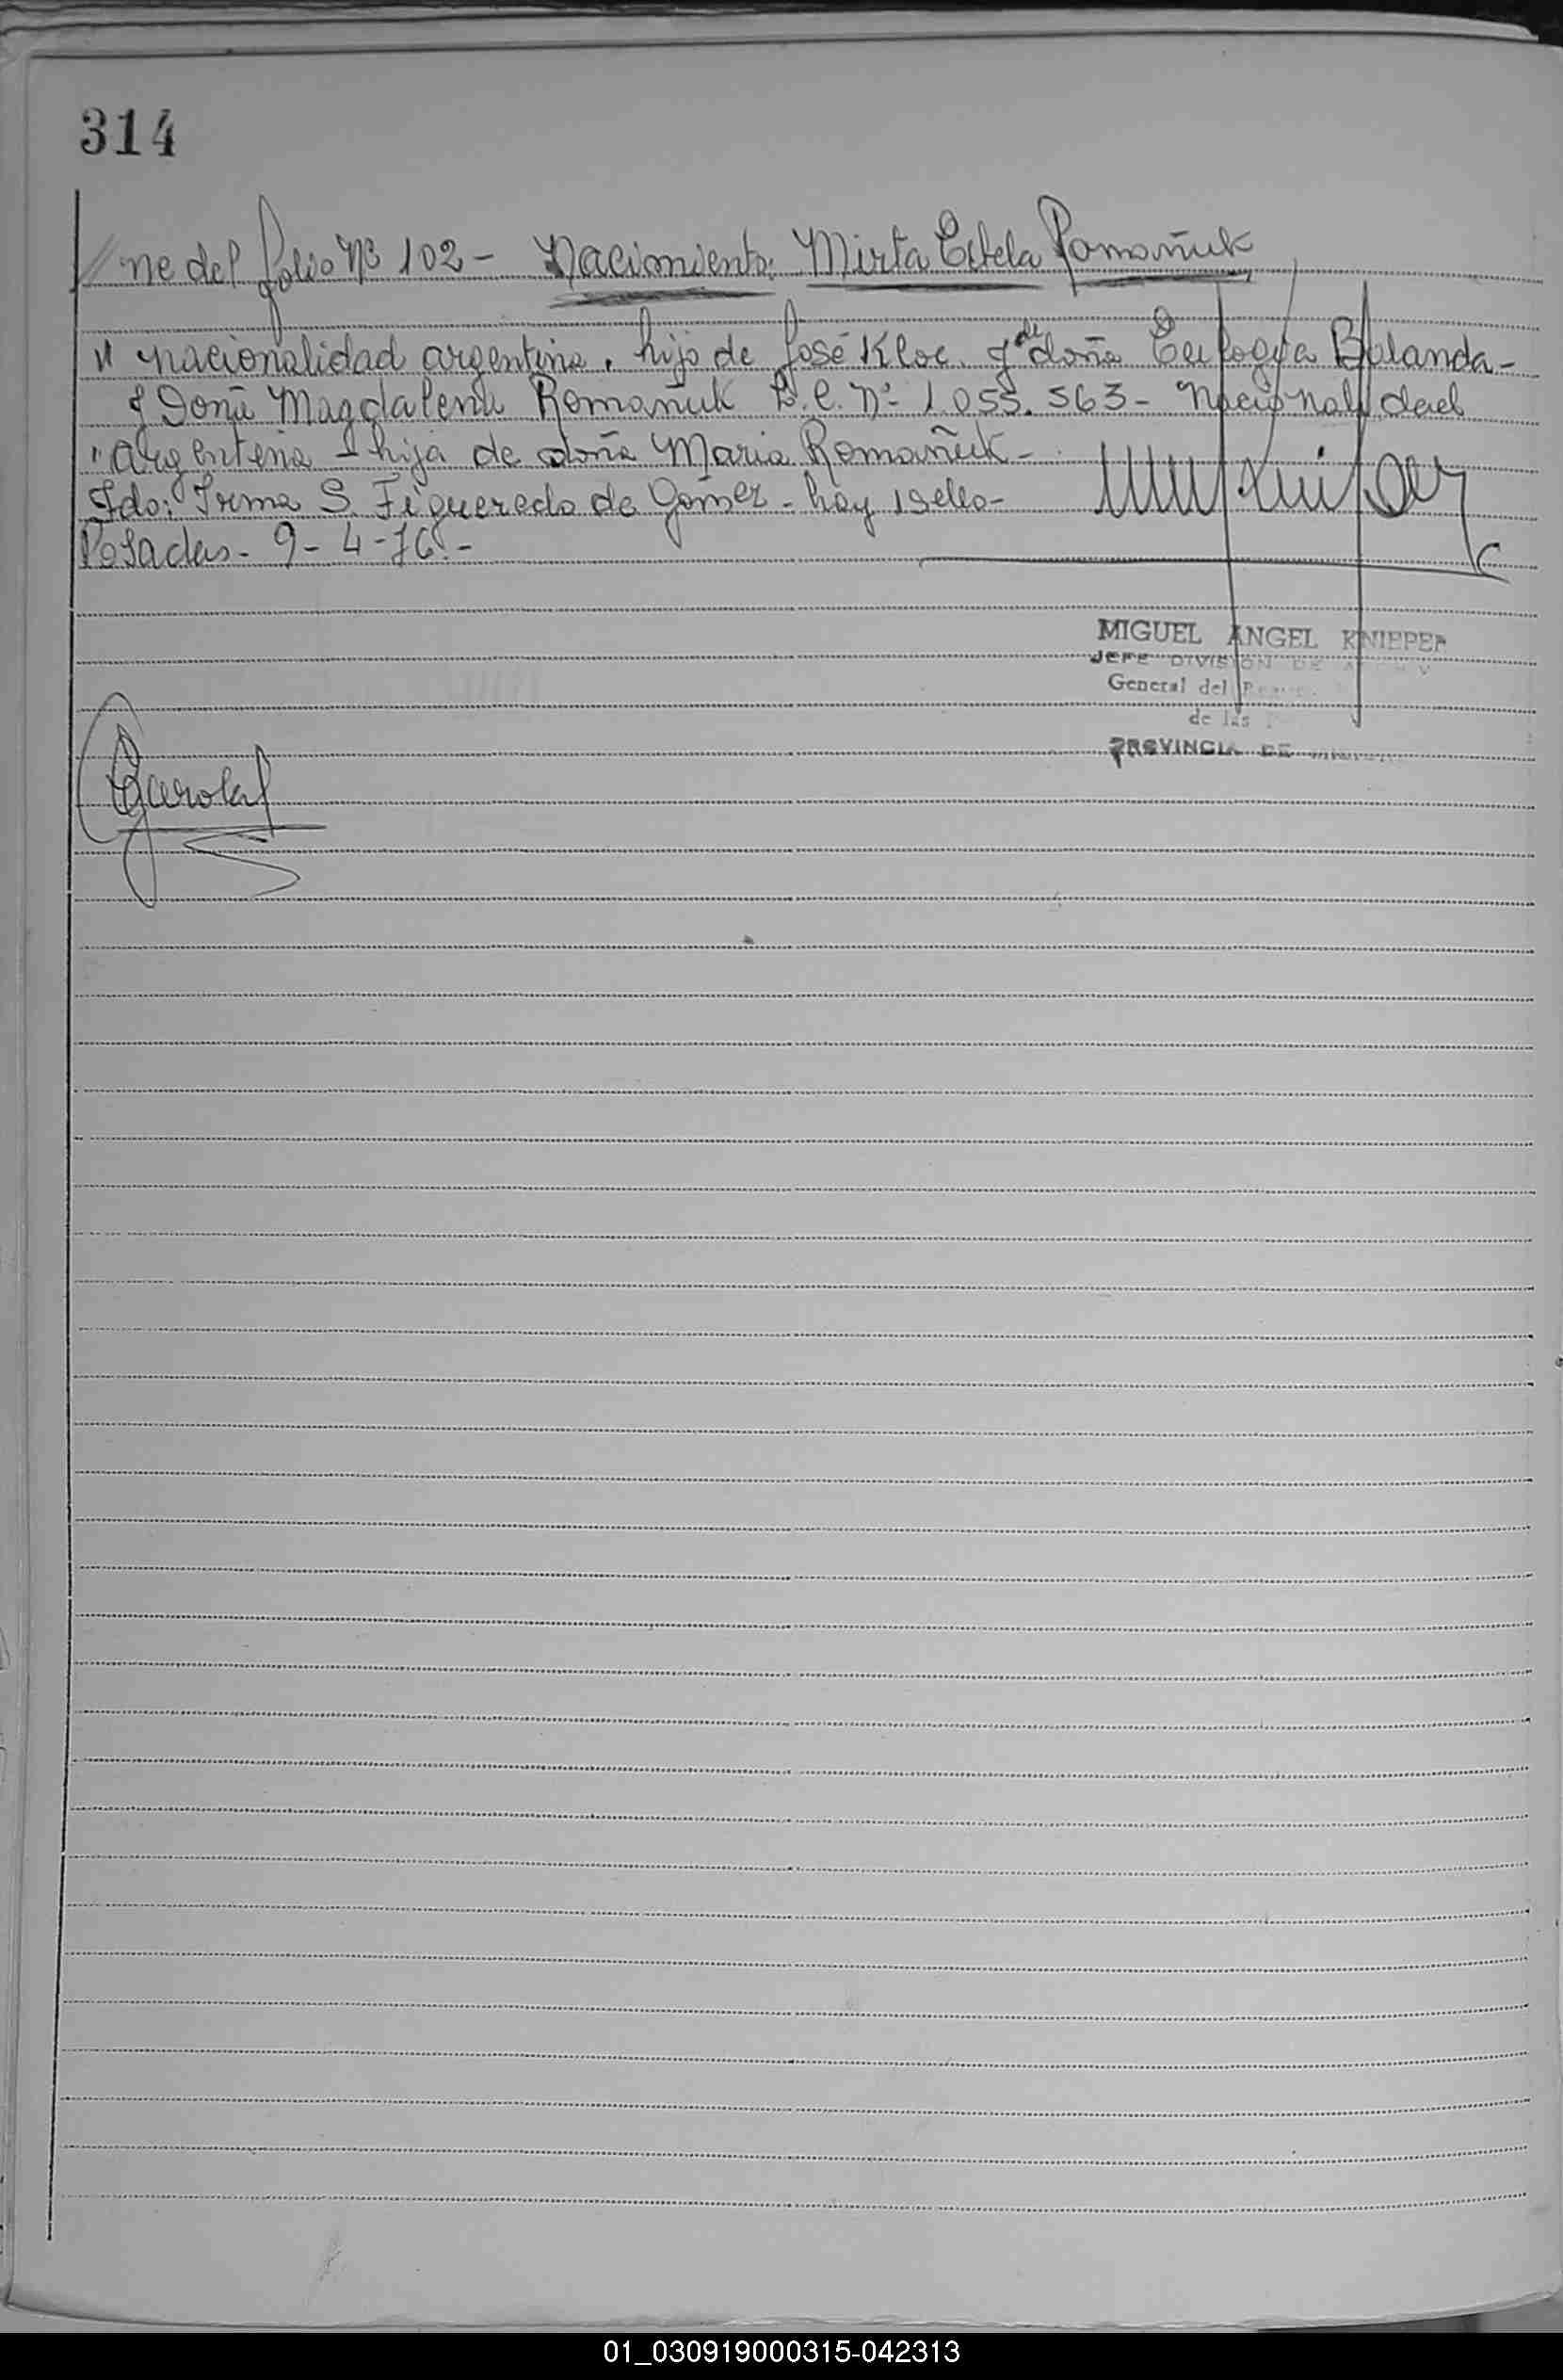 314
ne del folio Nº 102 - Nacimiento: Mirta Estela Romañuk
" nacionalidad argentina, hijo de José Kloc y de doña Eulogia Balanda -
y Doña Magdalena Romañuk L.C. Nº 1.055.563 - Nacionalidad
" argentina - hija de doña Maria Romañuk -
Fdo: Irma S. Figueredo de Gomez - hay 1 sello -
Posadas - 9 - 4 - 76. -
MIGUEL ANGEL KNIPPER
JEFE DIVISION DE
General del
de las
PROVINCIA DE
01_030919000315-042313